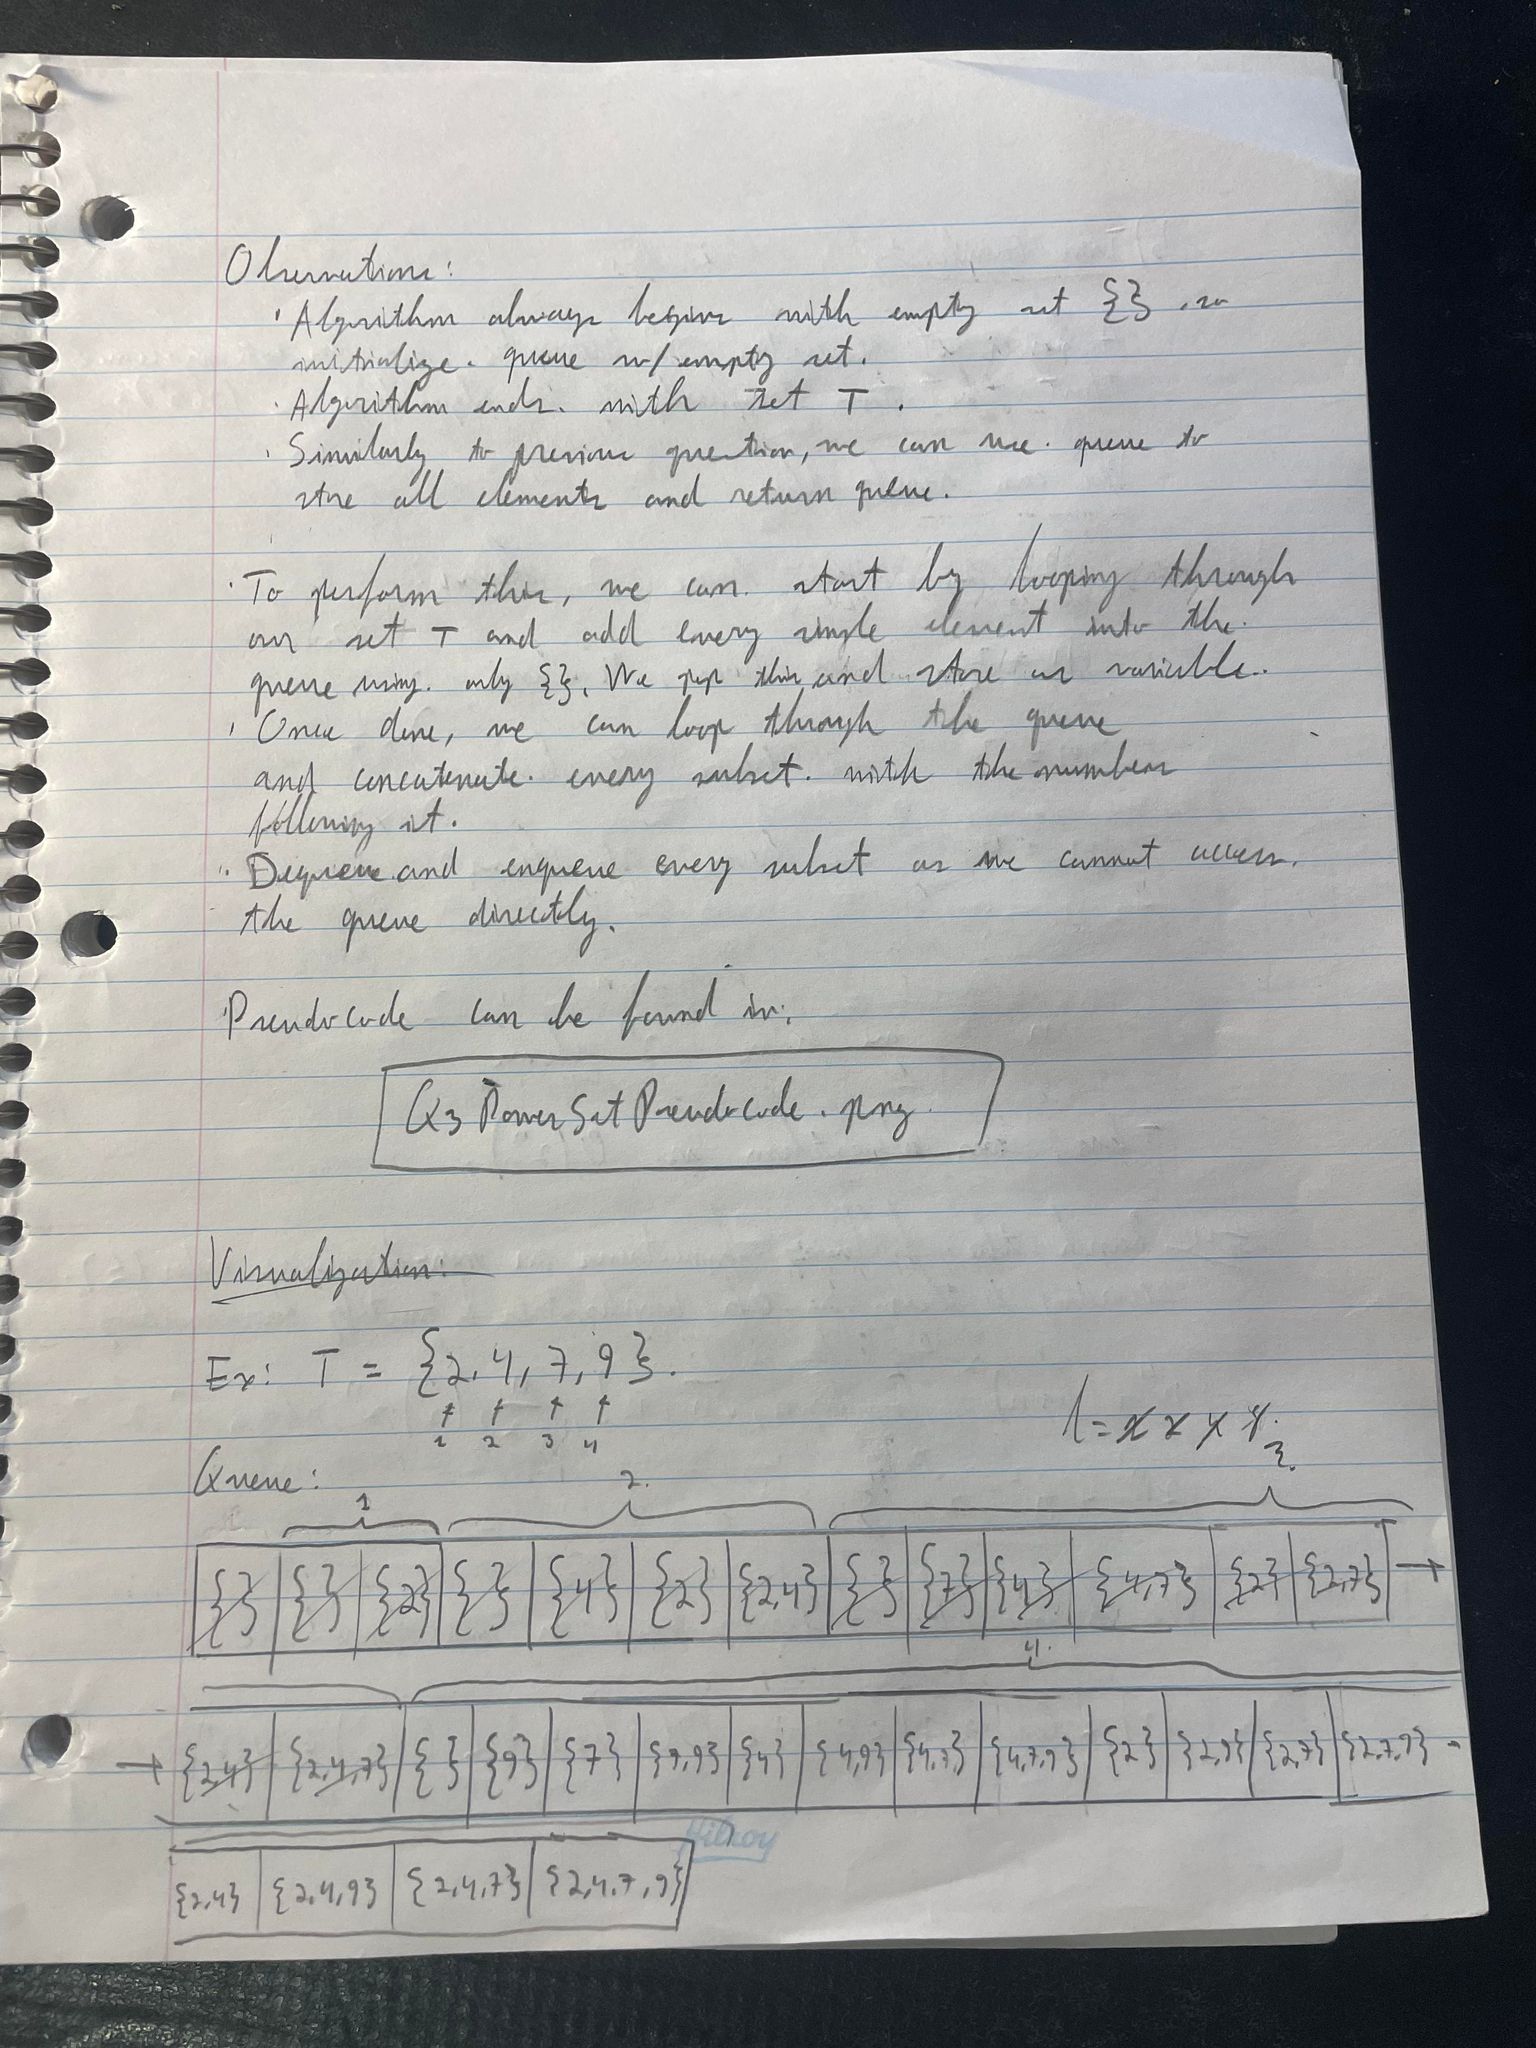 Observations:
· Algorithm always begins with empty set {} , so
initialize queue w/ empty set.
· Algorithm ends with set T .
· Similarly to previous question, we can use queue to
store all elements and return queue.
· To perform this, we can start by looping through
our set T and add every single element into the
queue using only {}. We pop this and store as variable.
· Once done, we can loop through the queue
and concatenate every subset with the numbers
following it.
· Dequeue and enqueue every subset as we cannot access
the queue directly.
Pseudocode can be found in:
Q3PowerSetPseudocode.png
Visualization:
Ex: T = {2, 4, 7, 9}.
1 2 3 4
Queue:
1 2. 3.
{} {} {2} {} {4} {2} {2,4} {} {7} {4} {4,7} {2} {2,7} →
4.
→ {2,4} {2,4,7} {} {9} {7} {7,9} {4} {4,9} {4,7} {4,7,9} {2} {2,9} {2,7} {2,7,9}
Hilroy
{2,4} {2,4,9} {2,4,7} {2,4,7,9}